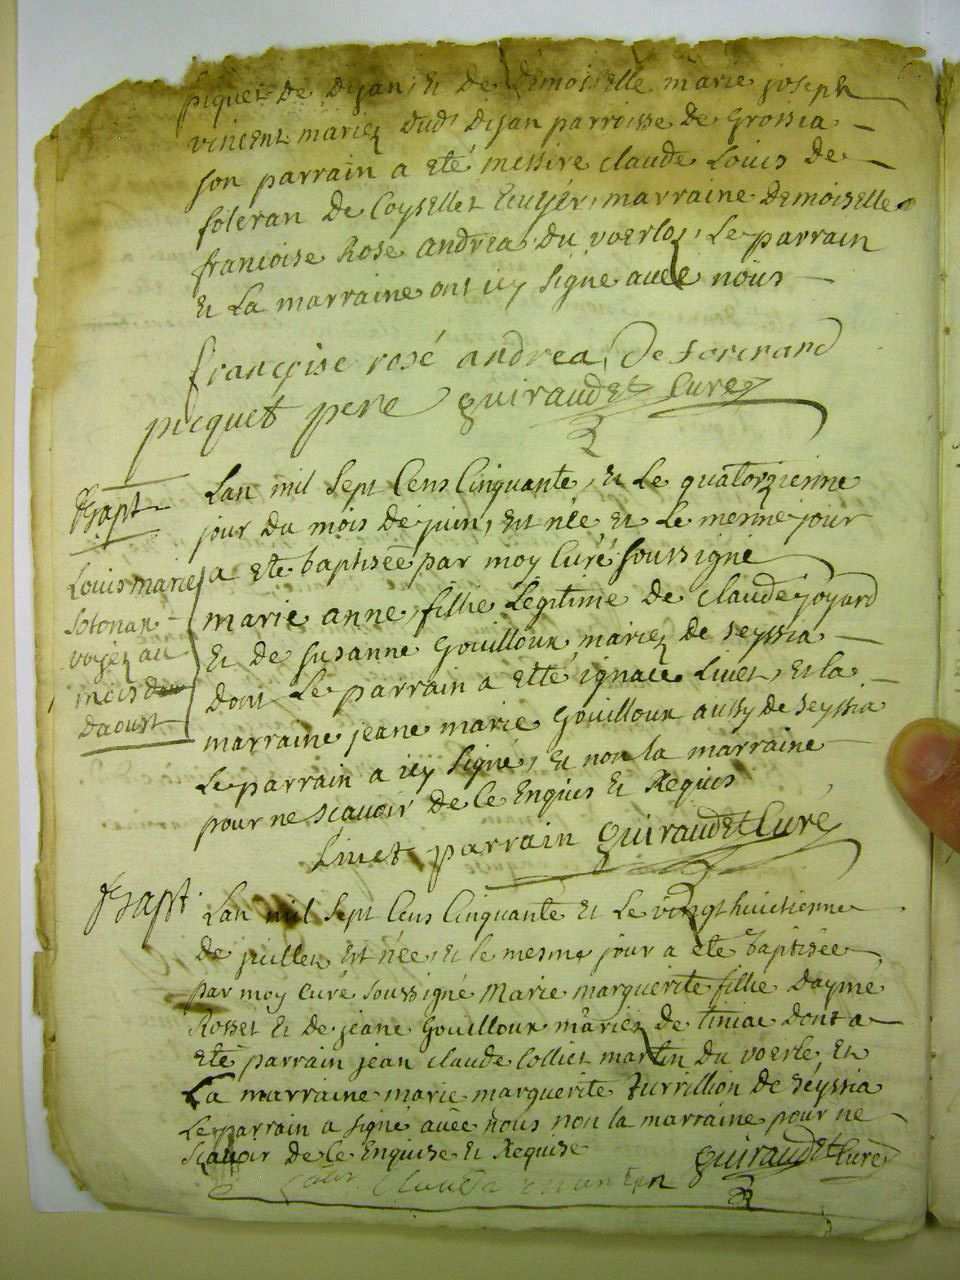 piquet De Dijan, Et De Demoiselle marie joseph
vincent mariez dudt Dijan parroisse De Grossia
son parrain a eté messire claude Louis de
De Coysellet Ecuyer, marraine Demoiselle
francoise Rose andrea du voerlos, Le parrain
Et La marraine ont icy signé avec nous
françoise rosé andrea De
picquet pere guiraudet Curé
Bapt
Lan mil sept Cens Cinquante, Et Le quatorzienne
jour du mois de juin, est née et Le mesme jour
a eté baptisée par moy Curé soussigné
marie anne, fillie Legitime de claude joyard
Et de susanne Gouilloux mariez de seyssia
dont Le parrain a etté ignace Livet, et la
marraine jeane marie Gouilloux aussy de seyssia
Le parrain a icy signé, et non la marraine
pour ne scavoir de ce Enquis Et Requis
Livet parrain guiraudet Curé
Louis marie
Sotonax
voyez au
mois
daoust
Bapt
Lan mil sept Cens Cinquante et Le vingthuictienne
de juillet est née, et le mesme jour a eté baptisée
par moy Curé soussigné Marie marguerite fillie daymé
Rosset et de jeane Gouilloux mariez de tiniac dont a
eté parrain jean claude Colliet martin du voerle, et
La marraine marie marguerite Turrillion de séyssia
Le parrain a signé avec nous non la marraine pour ne
scavoir de ce Enquise et Requise
guiraudet Curé